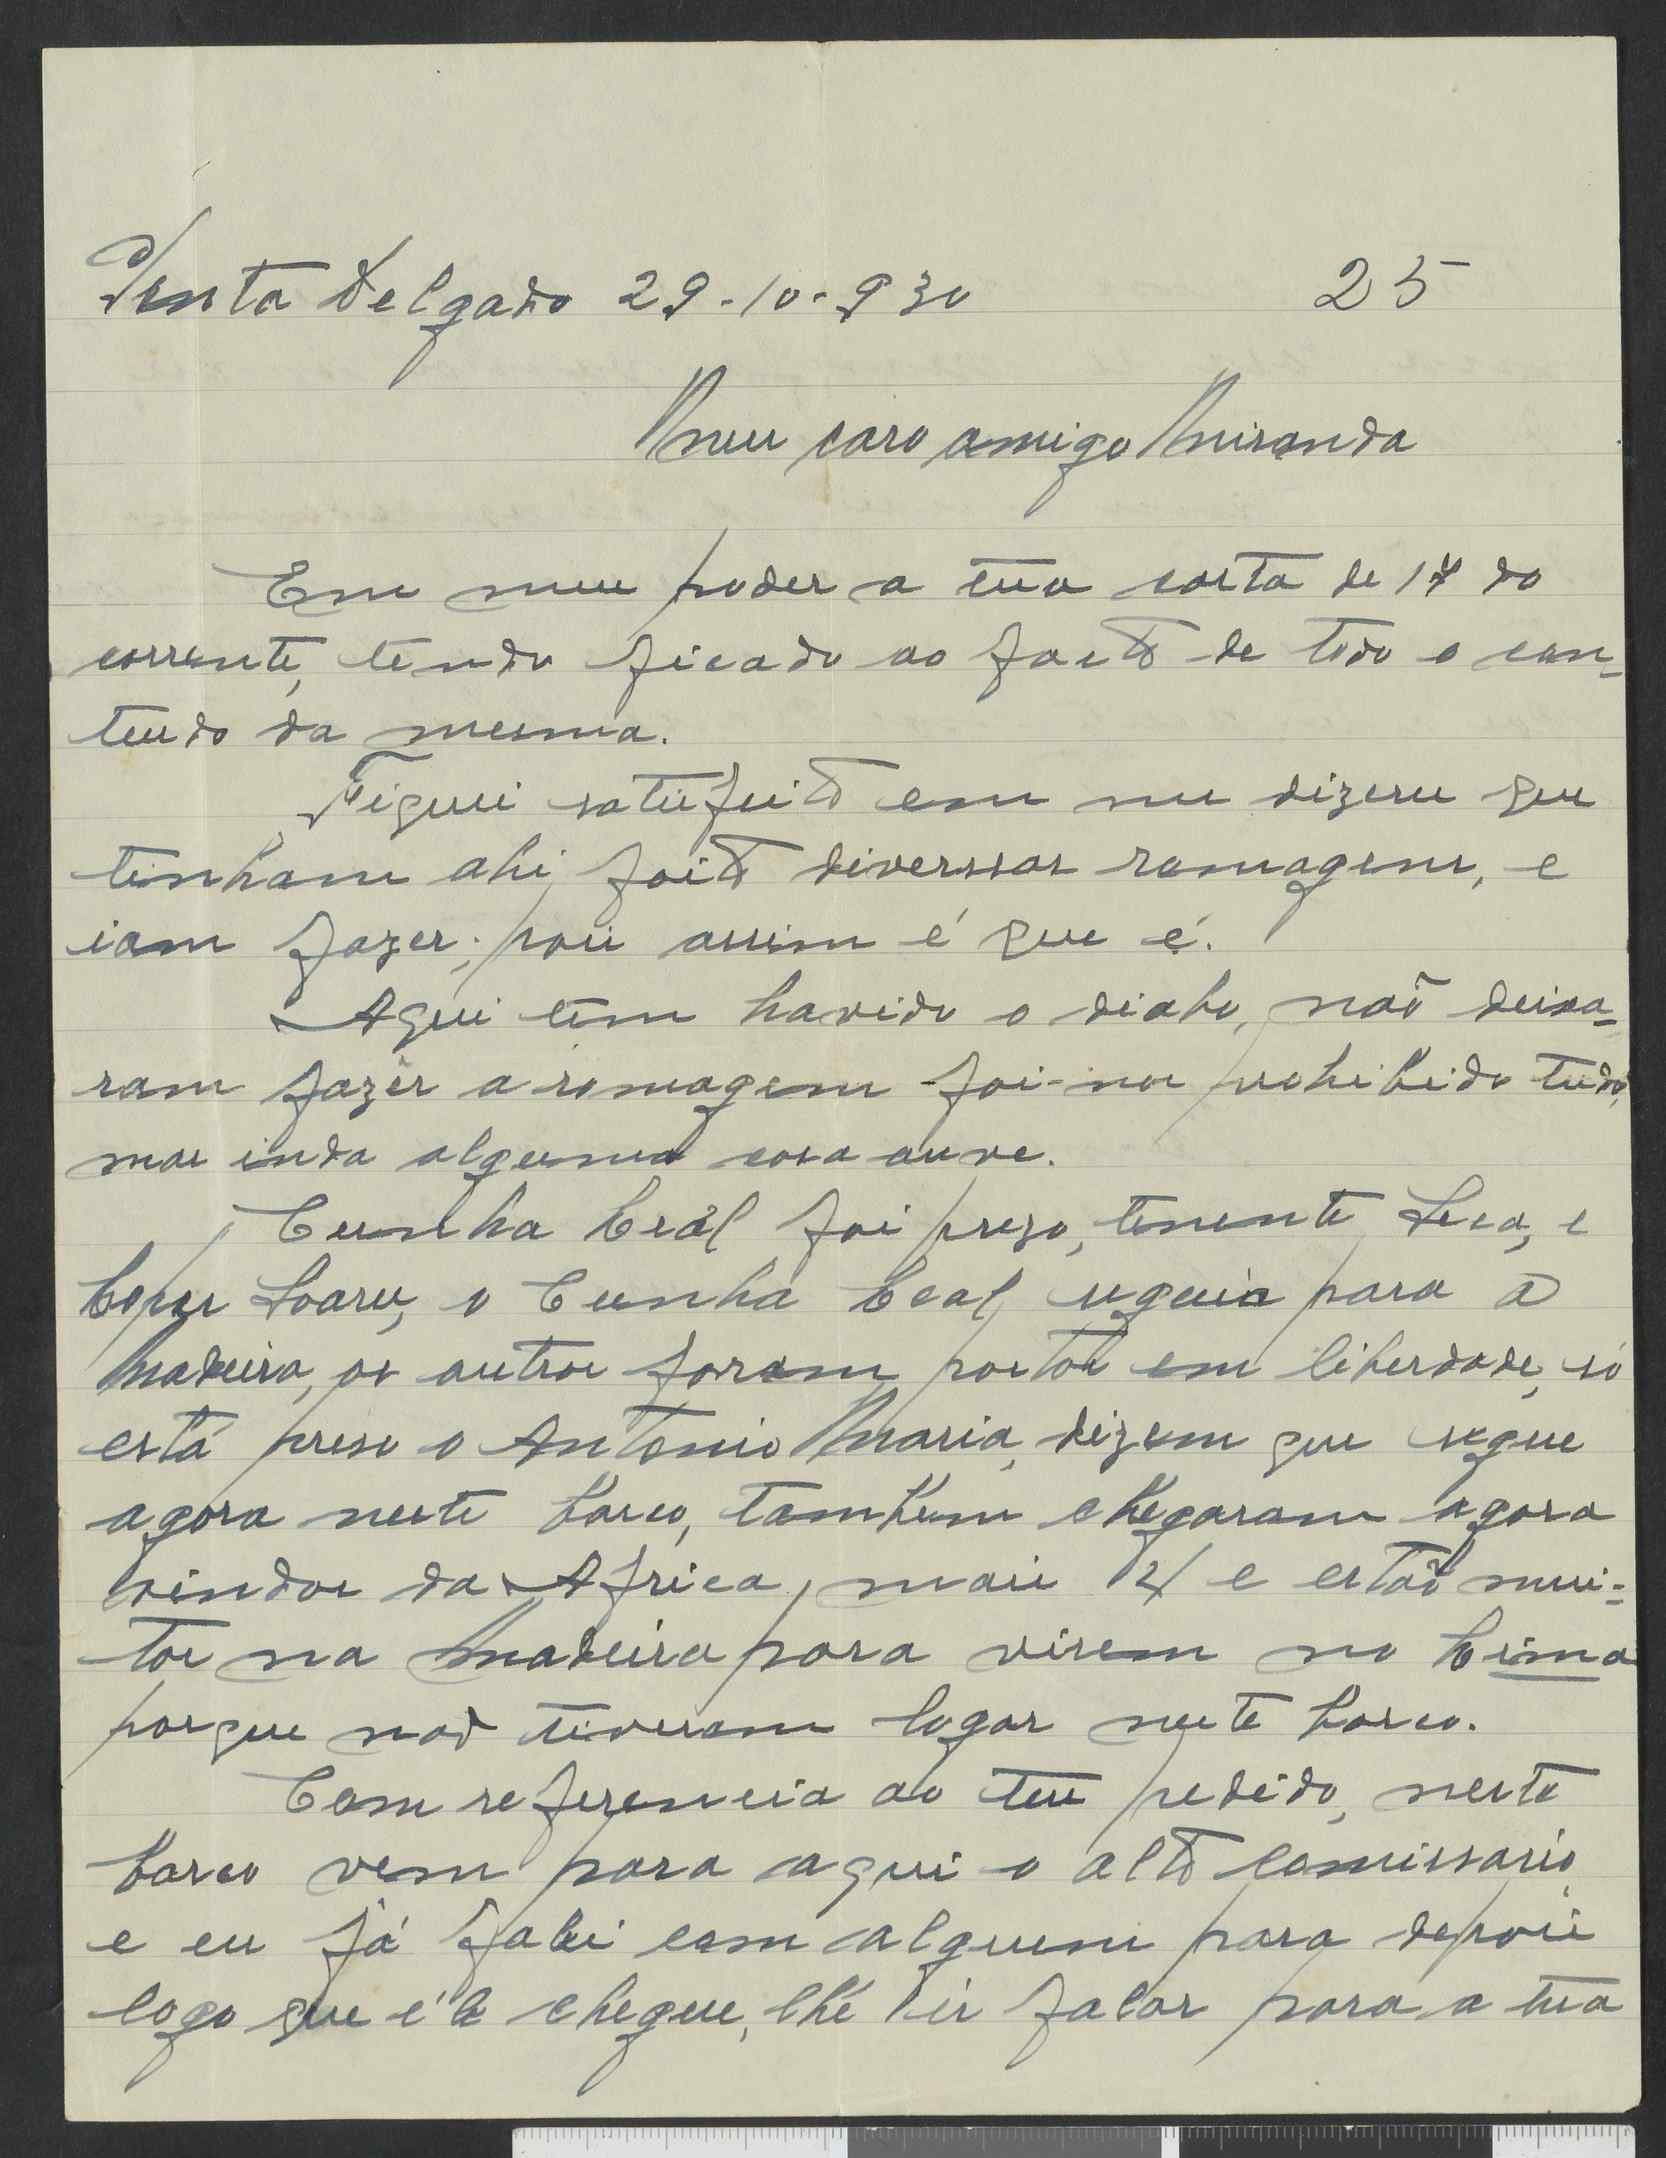 Ponta Delgada 29-10-930 25
Meu caro amigo Miranda
Em meu poder a tua carta de 17 do
corrente, tendo ficado ao facto de todo o con-
teudo da mesma.
Fiquei satisfeito em me dizeres que
tinham ahi, feito diverssas romagens, e
iam fazer; pois assim é que é.
Aqui tem havido o diabo, não deixa-
ram fazer a romagem foi-nos prohibido tudo,
mas inda alguma cosa ouve.
Cunha Leal foi prezo, tenente Seca, e
Lopes Soares, o Cunha Leal, seguia para a
Madeira, os outros foram postos em liberdade, só
está preso o Antonio Maria, dizem que segue
agora neste barco, tambem chegaram agora
vindos da Africa, mais e estão mui-
tos na Madeira para virem no Lima
porque não tiveram logar neste barco.
Com referencia ao teu pedido, neste
barco vem para aqui o alto comissario,
e eu já falei com alguem para depois
logo que é'le chegue, lhe ir falar para a tua